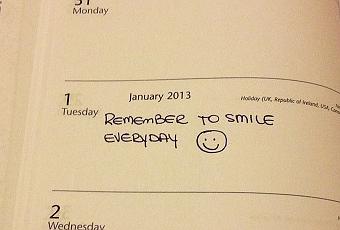 31
Monday
1
Tuesday
January 2013
Holiday (UK, Republic of Ireland, USA,
REMEMBER TO SMILE
EVERYDAY
2
Wednesday